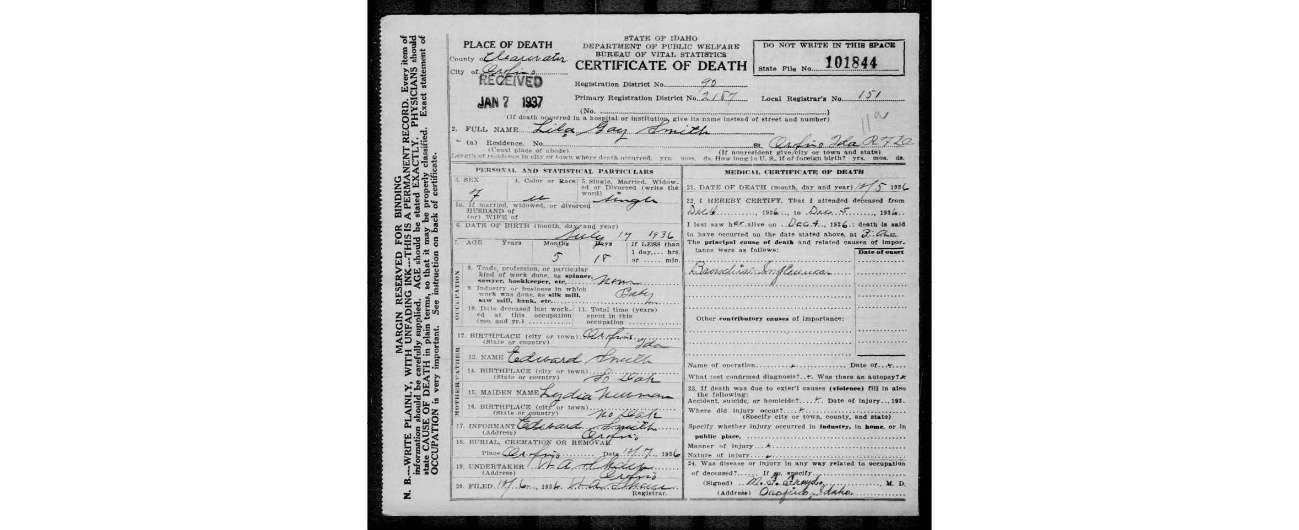 N. B.—WRITE PLAINLY, WITH UNFADING INK—THIS IS A PERMANENT RECORD. Every item of
information should be carefully supplied. AGE should be stated EXACTLY. PHYSICIANS should
state CAUSE OF DEATH in plain terms, so that it may be properly classified. Exact statement of
OCCUPATION is very important. See instruction on back of certificate.
MARGIN RESERVED FOR BINING
STATE OF IDAHO
DEPARTMENT OF PUBLIC WELFARE
BUREAU OF VITAL STATISTICS
CERTIFICATE OF DEATH
DO NOT WRITE IN THIS SPACE
State File No. 101844
PLACE OF DEATH
County of Clearwater
City of Orofino
RECEIVED
JAN 7 1937
Registration District No. 90
Primary Registration District No. 2187 Local Registrar's No. 151
(No.
(If death occurred in a hospital or institution, give its name instead of street and number)
2. FULL NAME Lila Gay Smith
(a) Residence. No. Orofino Ida RFD
(Usual place of abode) (If nonresident give city or town and state)
Length of residence in city or town where death occurred. yrs. mos. ds. How long in U. S., if of foreign birth? yrs. mos. ds.
PERSONAL AND STATISTICAL PARTICULARS
3. SEX 4. Color or Race 5. Single, Married, Widow-
ed or Divorced (write the
word)
F Single
5a. If married, widowed, or divorced
HUSBAND of
(or) WIFE of
6. DATE OF BIRTH (month, day and year) July 17 1936
7. AGE Years Months Days If LESS than
1 day, hrs.
or min.
5 18
OCCUPATION
8. Trade, profession, or particular
kind of work done, as spinner,
sawyer, bookkeeper, etc. None
9. Industry or business in which
work was done, as silk mill,
saw mill, bank, etc. Baby
10. Date deceased last work-
ed at this occupation
(mo. and yr.)
11. Total time (years)
spent in this
occupation
12. BIRTHPLACE (city or town) Orofino
(State or country) Ida
FATHER
13. NAME Edward Smith
14. BIRTHPLACE (city or town)
(State or country) So Dak
MOTHER
15. MAIDEN NAME Lydia
16. BIRTHPLACE (city or town)
(State or country) No Dak
17. INFORMANT Edward Smith
(Address) Orofino
18. BURIAL, CREMATION OR REMOVAL
Place Orofino Date 12/7, 1936
19. UNDERTAKER
(Address) Orofino
20. FILED 12/6, 1936
Registrar.
MEDICAL CERTIFICATE OF DEATH
21. DATE OF DEATH (month, day and year) 12/5 1936
22. I HEREBY CERTIFY, That I attended deceased from
Dec 4, 1936, to Dec. 5, 1936.
I last saw her alive on Dec 4, 1936; death is said
to have occurred on the date stated above, at
The principal cause of death and related causes of impor-
tance were as follows:
Date of onset
Bronchial Influenza
Other contributory causes of importance:
Name of operation Date of
What test confirmed diagnosis? Was there an autopsy?
23. If death was due to exter'l causes (violence) fill in also
the following:
Accident, suicide, or homicide? Date of injury, 193
Where did injury occur?
(Specify city or town, county, and state)
Specify whether injury occurred in industry, in home, or in
public place,
Manner of injury
Nature of injury
24. Was disease or injury in any way related to occupation
of deceased? If so, specify
(Signed) M. D.
(Address) Orofino, Idaho.